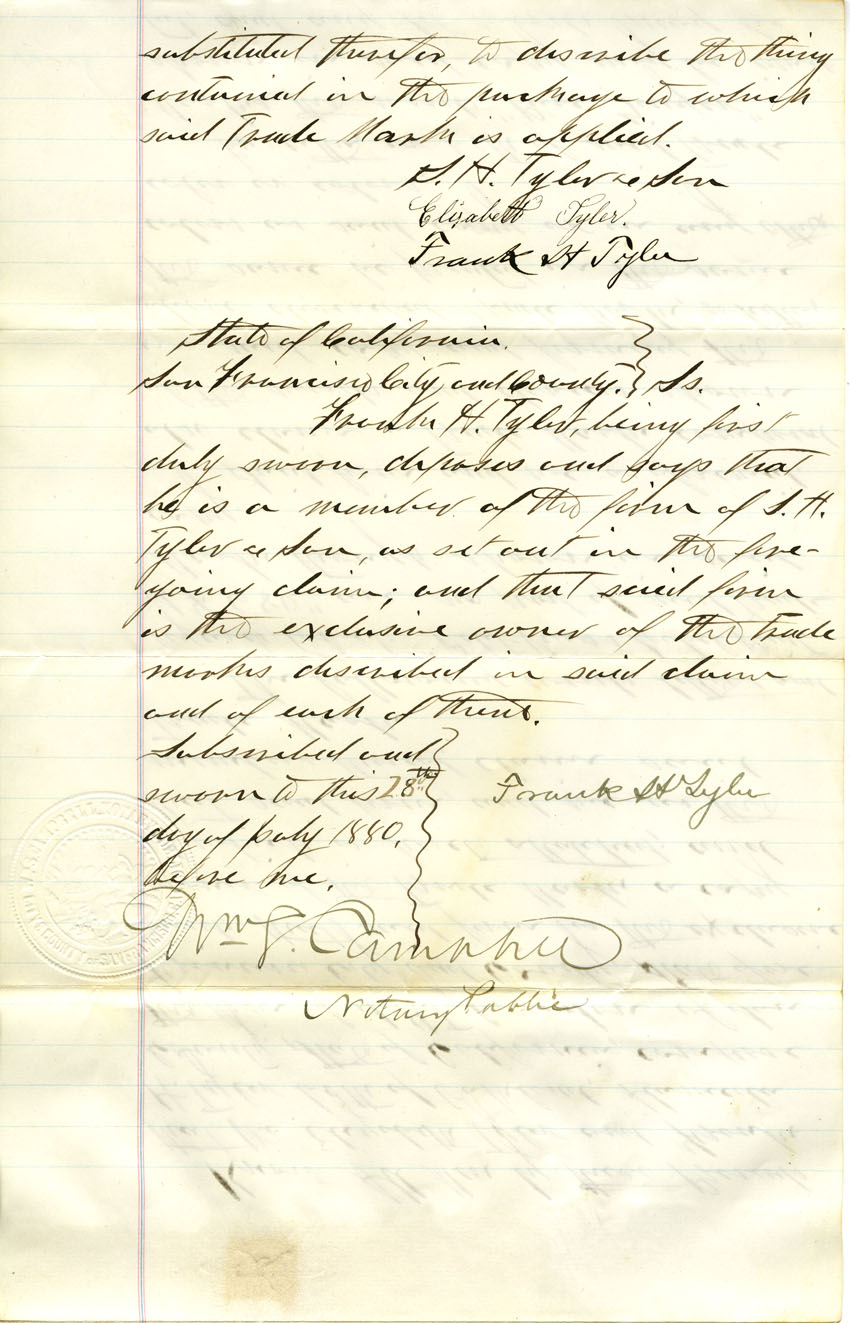 substituted therefor, to describe the thing
contained in the package to which
said Trade Mark is applied.
S. H. Tyler & Son
Elizabeth Tyler.
Frank H Tyler
State of California.
San Francisco City and County. } Ss.
Frank H. Tyler, being first
duly sworn, deposes and says that
he is a member of the firm of S. H.
Tyler & Son, as set out in the fore-
going claim; and that said firm
is the exclusive owner of the Trade
marks described in said claim
and of each of them.
Subscribed and
sworn to this 28th
Frank H Tyler
day of July 1880.
before me,
Wm J. Campbell
Notary Public